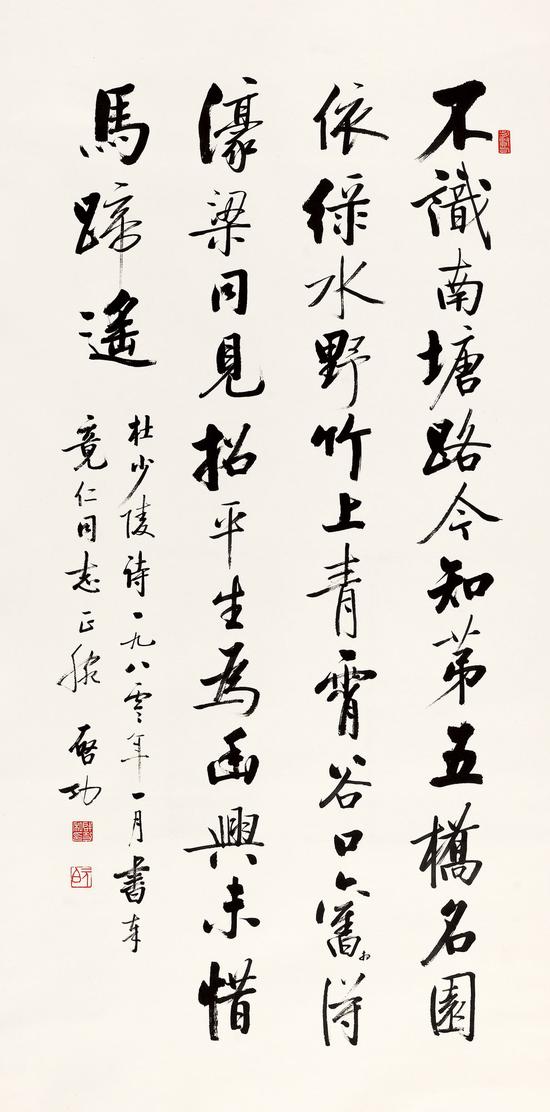 不識南塘路今知第五橋名園
依綠水野竹上青霄谷口舊相得
濠梁同見招平生為幽興未惜
馬蹄遙
杜少陵詩一九八零年一月書奉
竟仁同志正腕 啓功